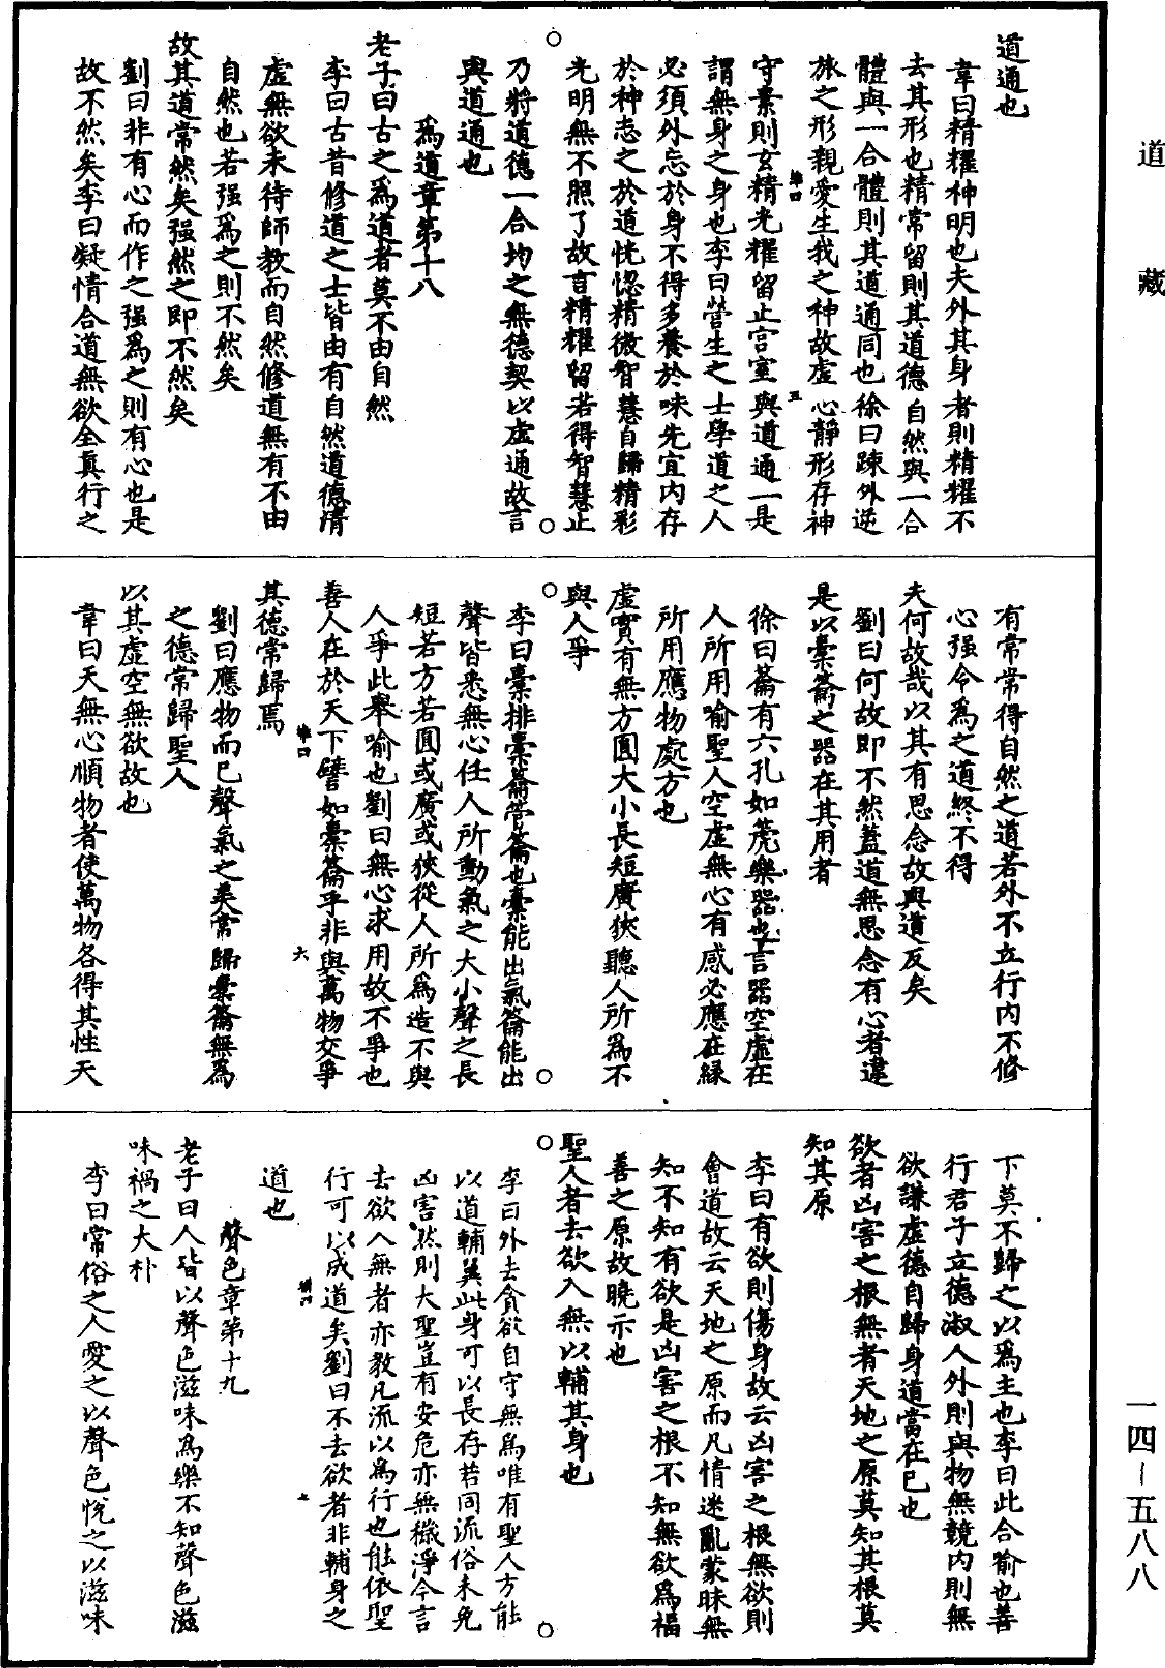 道藏
一四—五八八
道通也
韋曰精耀神明也夫外其身者則精耀不
去其形也精常留則其道德自然與一合
體與一合體則其道通同也徐曰疎外逆
旅之形親愛生我之神故虛心靜形存神
守素則玄精光耀留止宫室與道通一是
謂無身之身也李曰營生之士學道之人
必須外忘於身不得多養於味先宜内存
於神志之於道恍惚精微智慧自歸精彩
光明無不照了故言精耀留若得智慧止
乃將道德一合均之無德契以虛通故言
與道通也
爲道章第十八
老子曰古之爲道者莫不由自然
李曰古昔修道之士皆由有自然道德清
虛無欲未待師教而自然修道無有不由
自然也若强爲之則不然矣
故其道常然矣强然之即不然矣
劉曰非有心而作之强爲之則有心也是
故不然矣李曰凝情合道無欲全真行之
有常常得自然之道若外不立行内不修
心强令爲之道終不得
夫何故哉以其有思念故與道反矣
劉曰何故即不然蓋道無思念有心者違
是以橐籥之器在其用者
徐曰籥有六孔如箎樂器也言器空虛在
人所用喻聖人空虛無心有感必應在緣
所用應物處方也
虛實有無方圓大小長短廣狹聽人所爲不
與人爭
李曰橐排橐籥管籥也橐能出氣籥能出
聲皆悉無心任人所動氣之大小聲之長
短若方若圓或廣或狹從人所爲造不與
人爭此舉喻也劉曰無心求用故不爭也
善人在於天下譬如橐籥乎非與萬物交爭
其德常歸焉
劉曰應物而已聲氣之美常歸橐籥無爲
之德常歸聖人
以其虛空無欲故也
韋曰天無心順物者使萬物各得其性天
下莫不歸之以爲主也李曰此合喻也善
行君子立德淑人外則與物無競内則無
欲謙虛德自歸身道當在已也
欲者凶害之根無者天地之原莫知其根莫
知其原
李曰有欲則傷身故云凶害之根無欲則
會道故云天地之原而凡情迷亂蒙昧無
知不知有欲是凶害之根不知無欲爲福
善之原故曉示也
聖人者去欲入無以輔其身也
李曰外去貪欲自守無爲唯有聖人方能
以道輔翼此身可以長存若同流俗未免
凶害然則大聖豈有安危亦無穢淨今言
去欲入無者亦教凡流以爲行也能依聖
行可以成道矣劉曰不去欲者非輔身之
道也
聲色章第十九
老子曰人皆以聲色滋味爲樂不知聲色滋
味禍之大朴
李曰常俗之人愛之以聲色悅之以滋味